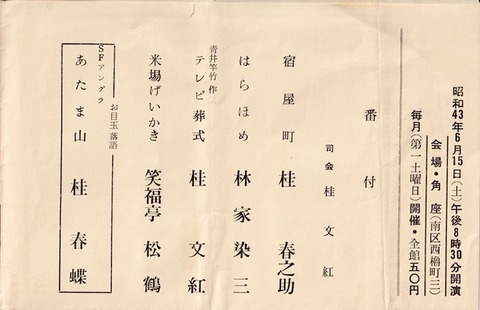 昭和43年6月15日(土)午後8時30分開演
会場・角座(南区西櫓町三)
毎月(第一土曜日)開催・全館五〇円
番付
司会 桂文紅
宿屋町 桂春之助
はらほめ 林家染三
青井竿竹 作
テレビ葬式 桂文紅
米揚げいかき 笑福亭松鶴
お目玉落語
SFアングラ
あたま山 桂春蝶